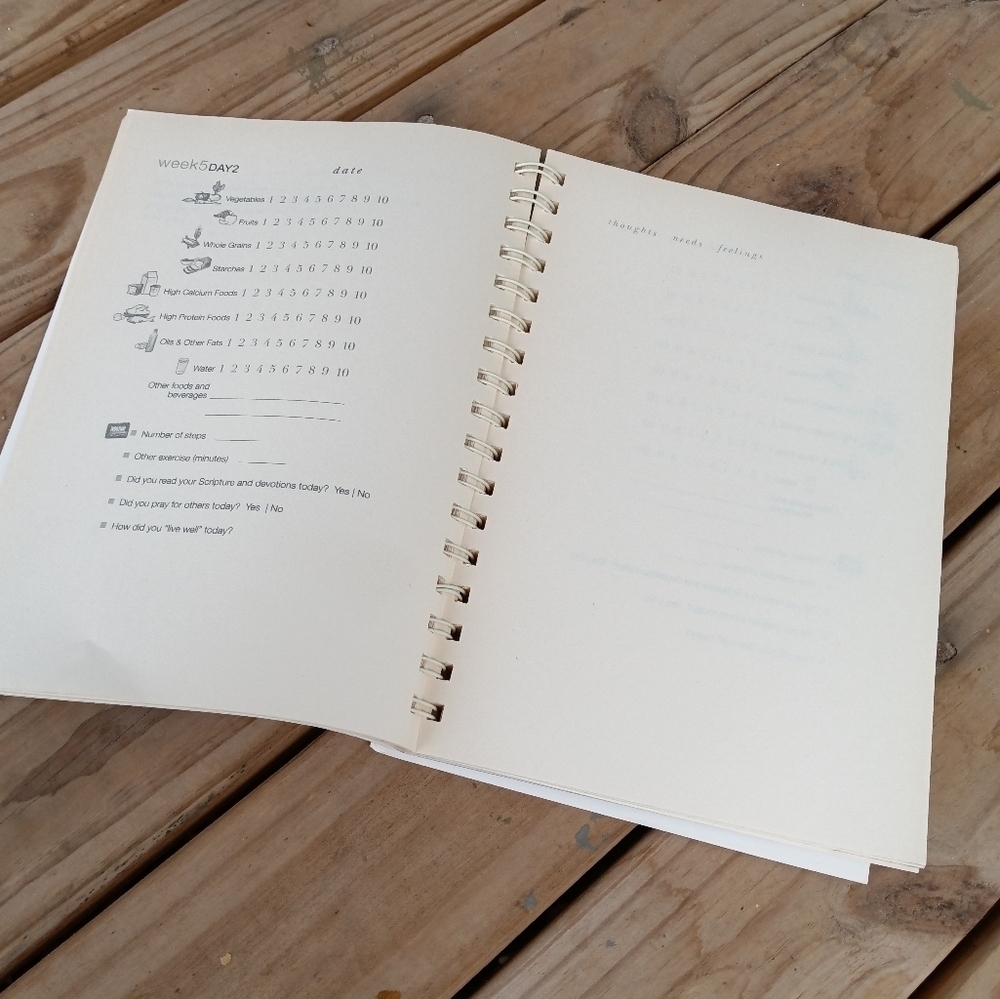 week5DAY2 date
Vegetables 1 2 3 4 5 6 7 8 9 10
Fruits 1 2 3 4 5 6 7 8 9 10
Whole Grains 1 2 3 4 5 6 7 8 9 10
Starches 1 2 3 4 5 6 7 8 9 10
High Calcium Foods 1 2 3 4 5 6 7 8 9 10
High Protein Foods 1 2 3 4 5 6 7 8 9 10
Oils & Other Fats 1 2 3 4 5 6 7 8 9 10
Water 1 2 3 4 5 6 7 8 9 10
Other foods and
beverages
Number of steps
Other exercise (minutes)
Did you read your Scripture and devotions today? Yes | No
Did you pray for others today? Yes | No
How did you "live well" today?
thoughts needs feelings